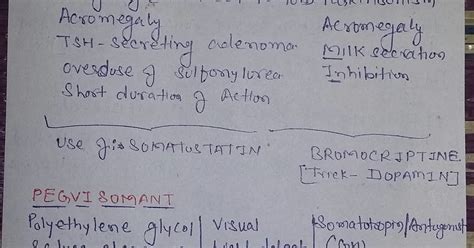 Acromegaly
TSH-secreting adenoma
overdose of Sulfonylurea
Short duration of Action
Acromegaly
Milk secretion
Inhibition
Use of :- SOMATOSTATIN
BROMOCRIPTINE
[Trick- DOPAMIN]
PEGVISOMANT
Polyethylene glycol/ Visual /Somatotropin/Antagonist